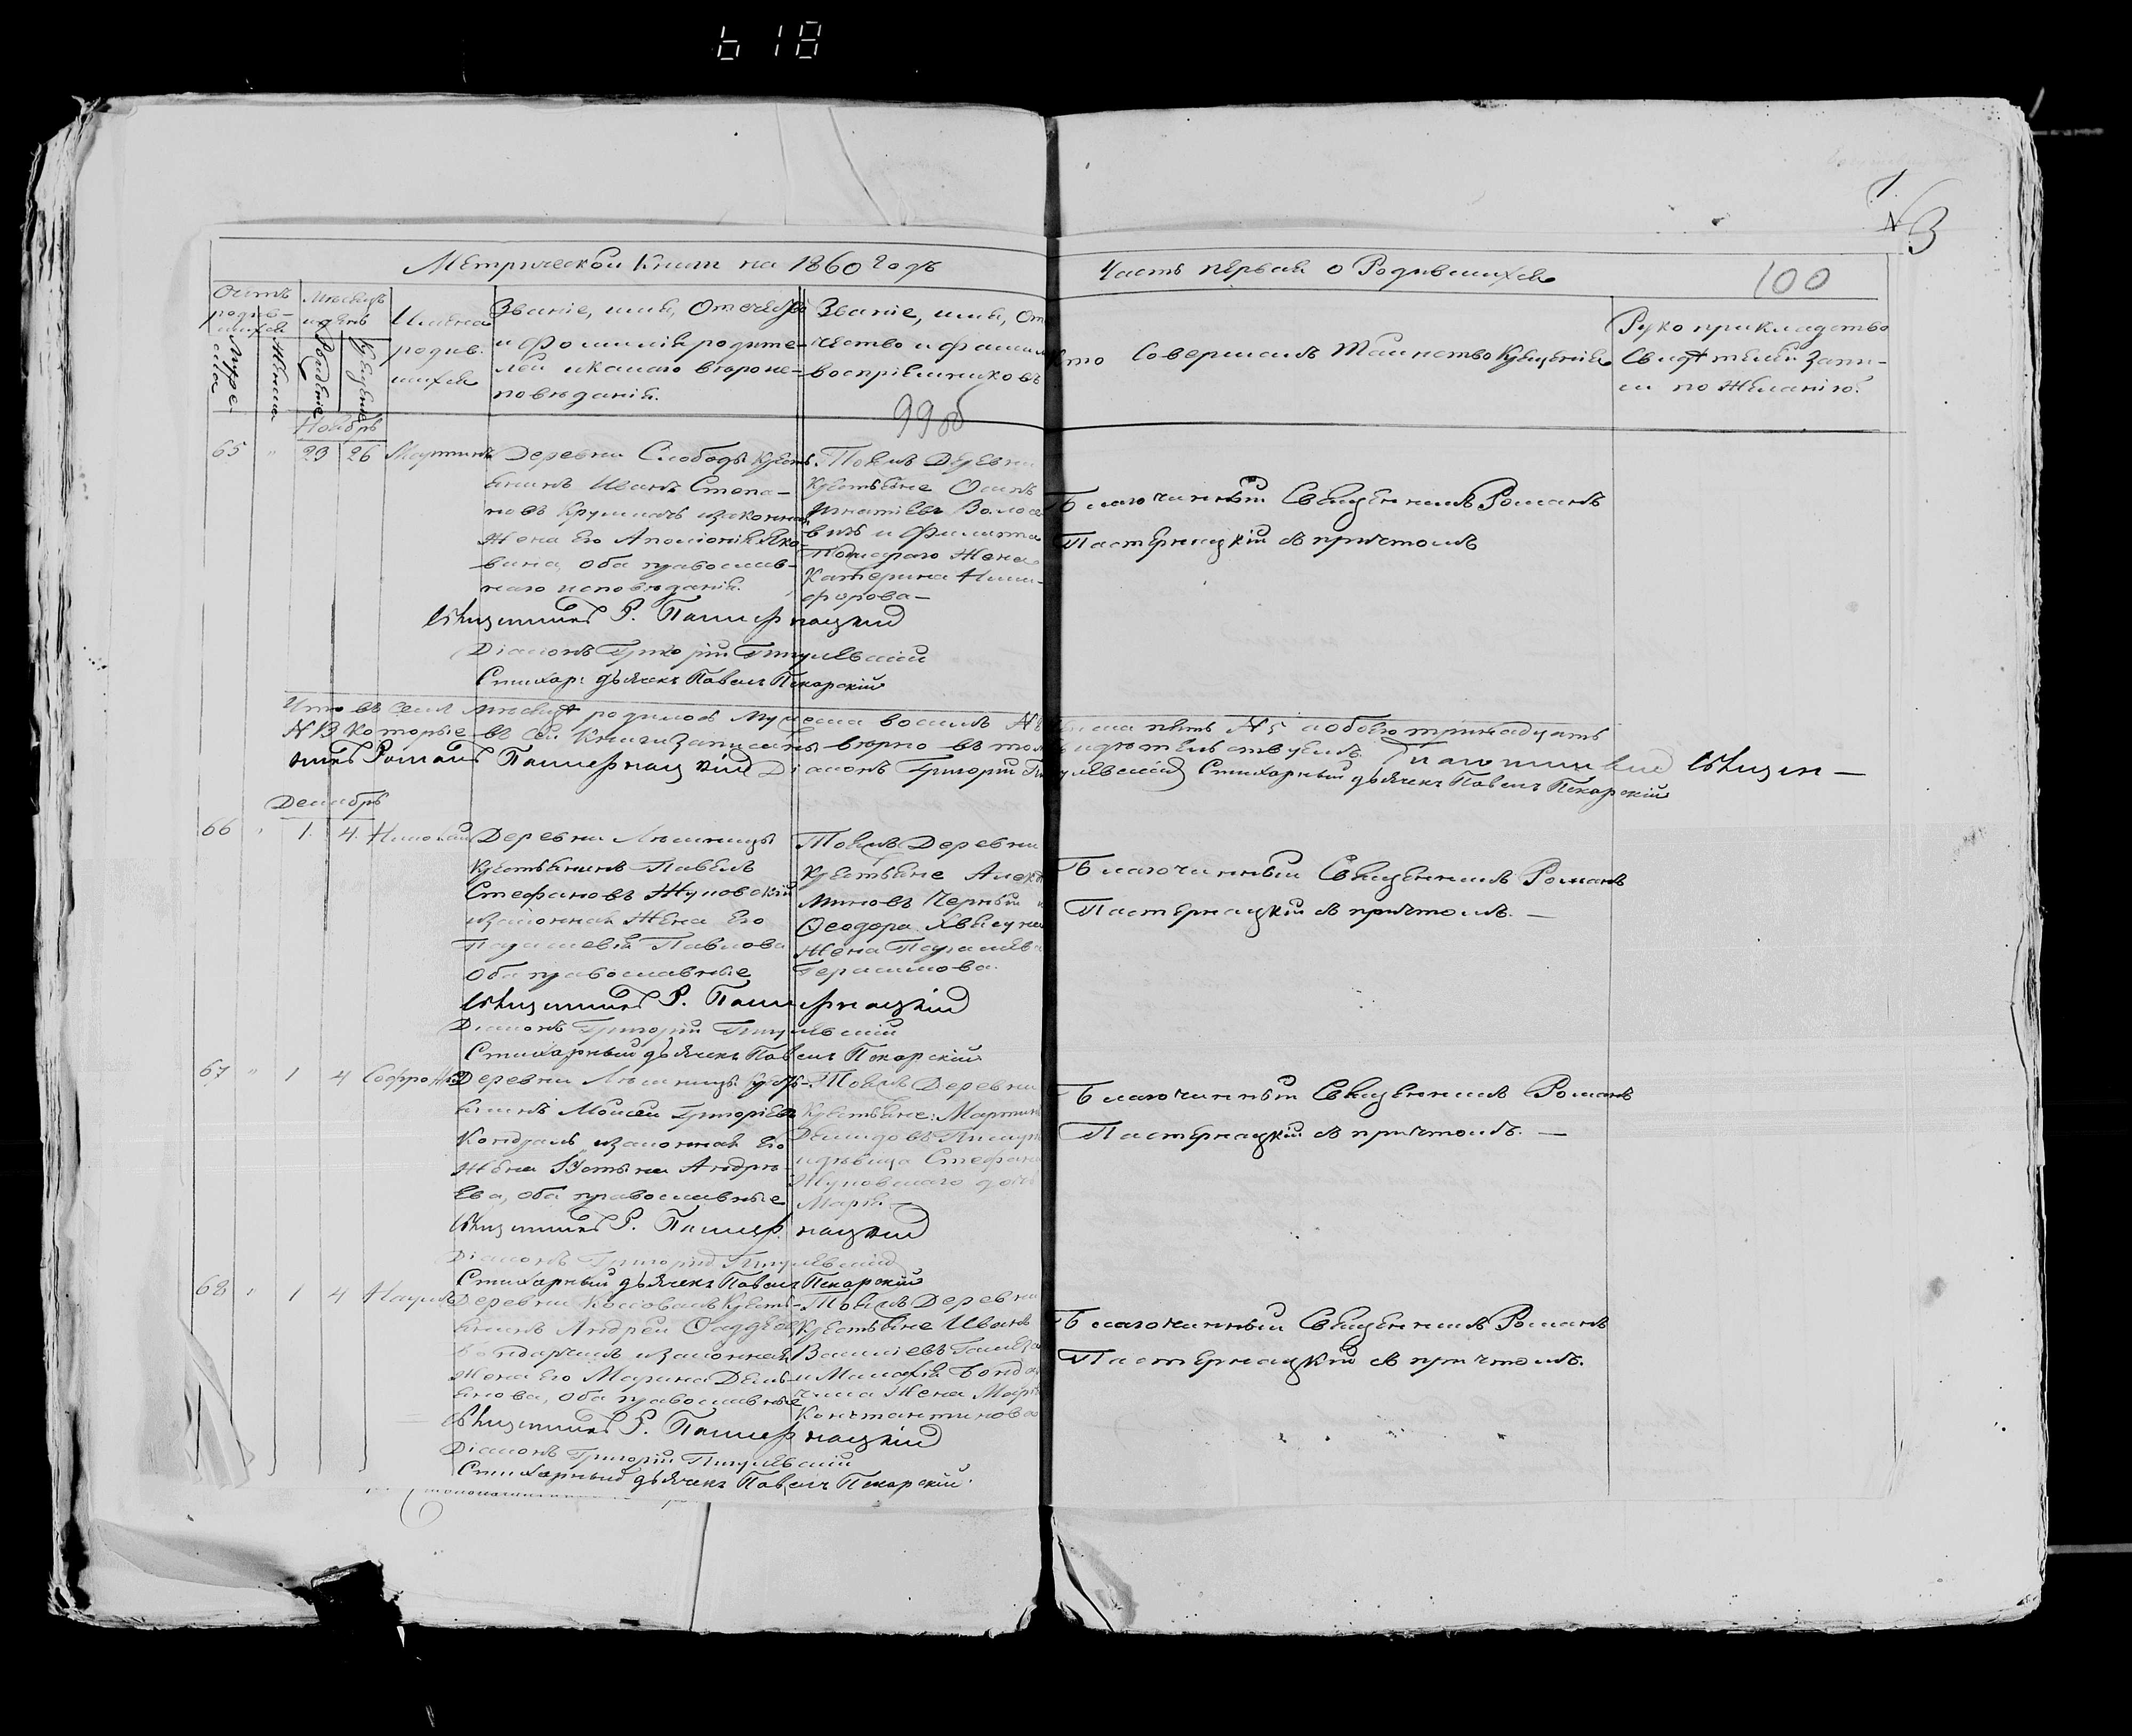 618
1.
N 3
Метрической Книги на 1860 Годъ
Часть первая о Родившихся
100
Счетъ родив-шихся
Муже ска
Женска
Мѣсяцъ и день
Рожденіе
Крещеніе
Имена
родив.
шихся
Званіе, имя, Отчество
и Фамилія родите-
лей и какого вѣроис-
повѣданія.
Званіе, имя, От
чество и фамил
воспріемниковъ
99 об
Кто Совершалъ Таинство Крещенія
Рукоприкладство
Свидѣтелей Запи-
си по Желанію.
Ноябрь
65 " 23 26 Мартинъ
Деревни Слободы Крест
янинъ Иванъ Степа-
новъ законная
Жена Его Аполонія Яко-
влева, оба православ-
наго исповѣданія.
Тоеяжъ Деревни
Крестьяне Осипъ
Игнатіевъ
и Филипа
Жена
Катерина Ники-
форова
Благочинный Священникъ Романъ
Пастернацкій съ причтомъ
Священникъ Р. Пастернацкій
Діаконъ Григорій
Стихар: дьячекъ Павелъ Пекарскій
Итого въ семъ мѣсяцѣ родилось мужеска восемь N 8 женска пять N 5 а обоего тринадцать
N 13 Которые въ сей Книги Записаны вѣрно въ томъ свидѣтельствуемъ. Благочинный Священ-
никъ Романъ Пастернацкій Діаконъ Григорій Стихарный дьячекъ Павелъ Пекарскій
Декабрь
66 " 1. 4. Николай
Деревни
Крестьянинъ Павелъ
Стефановъ Жуковскій
законная Жена Его
Параскевія Павлова
Оба православные
Тоеяжъ Деревни
Крестьяне
Черный и
Феодора
Жена Параскева
Герасимова.
Благочинный Священникъ Романъ
Пастернацкій съ причтомъ. —
Священникъ Р. Пастернацкій
Діаконъ Григорій
Стихарный дьячекъ Павелъ Пекарскій
67 " 1 4 Софроній
Деревни Крест-
янинъ Моисей Григоріевъ
законная Его
Жена Устина Андрѣ-
ева, оба православные
Тоеяжъ Деревни
Крестьяне: Мартинъ
Демидовъ
и дѣвица Стефана
Жуковскаго дочь
Марія
Благочинный Священникъ Романъ
Пастернацкій съ причтомъ. —
Священникъ Р. Пастернацкій
Діаконъ Григорій
Стихарный дьячекъ Павелъ Пекарскій
68 " 1 4 Наумъ
Деревни Крест-
янинъ Андрей Фаддѣев
Бондарчикъ законная
Жена Его Марина Демь-
янова, Оба православные
Тоеяжъ Деревни
Крестьяне Иванъ
Василіевъ
и Бонда
Жена Марія
Константинова
Благочинный Священникъ Романъ
Пастернацкій съ причтомъ.
Священникъ Р. Пастернацкій
Діаконъ Григорій
Стихарный дьячекъ Павелъ Пекарскій.